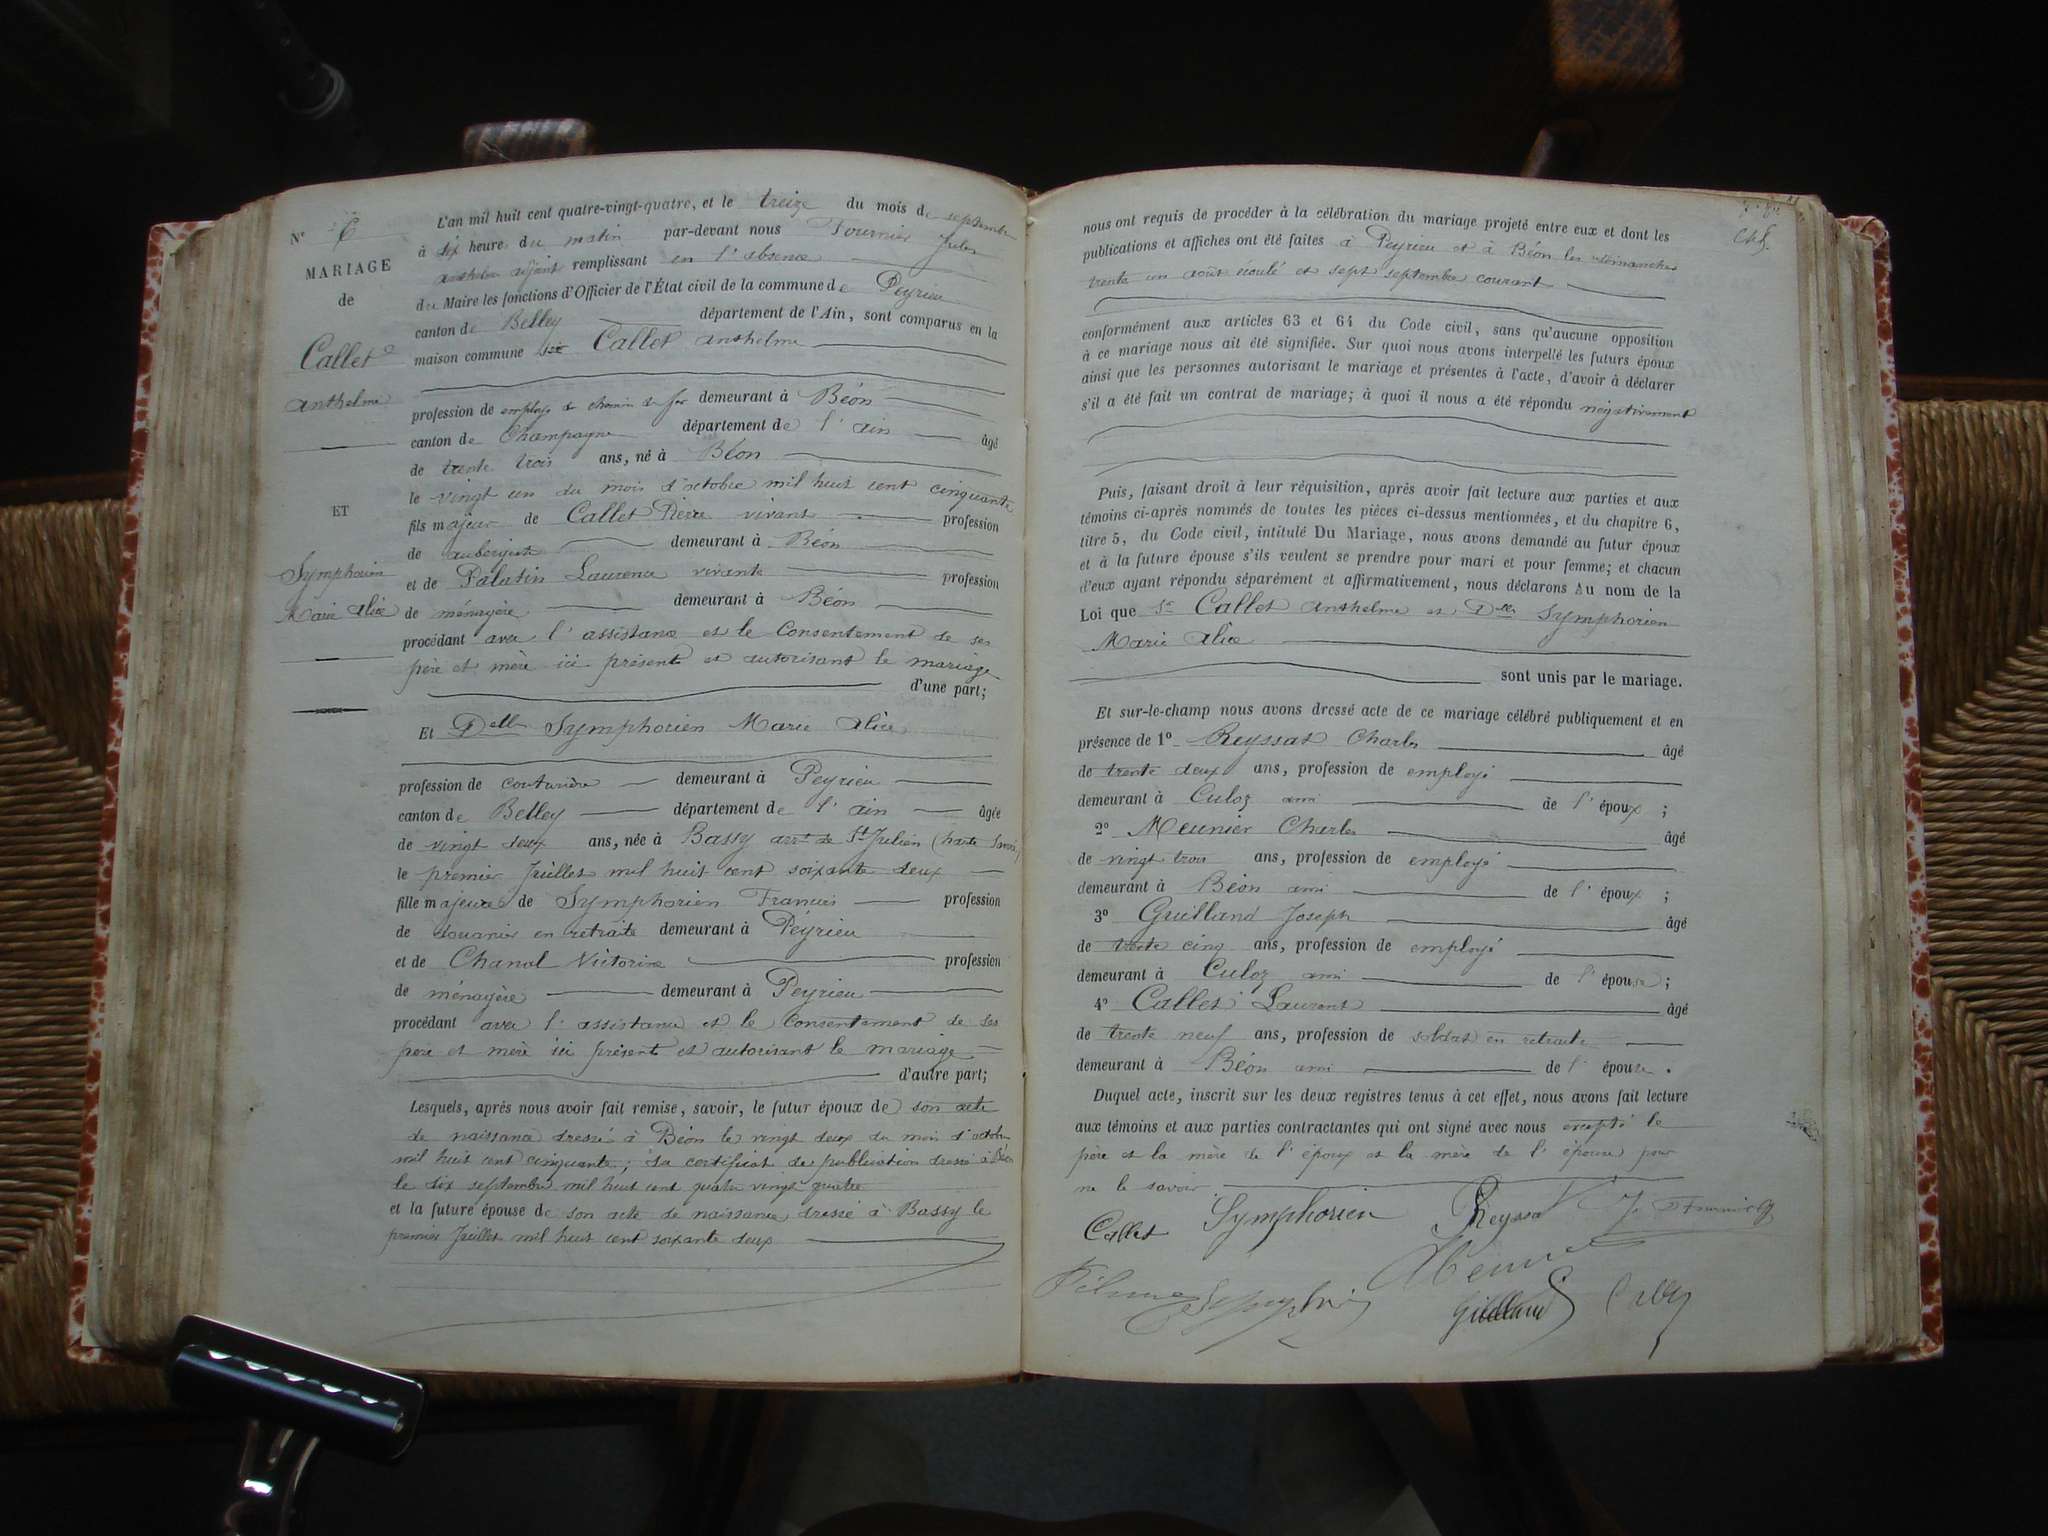 N° 6
MARIAGE
de
Callet
Anthelme
ET
Symphorien
Marie Alice
L'an mil huit cent quatre-vingt-quatre, et le treize du mois de septembre
à six heures du matin par-devant nous Fournier Jules
anthelme adjoint remplissant en l'absence
du Maire les fonctions d'Officier de l'État civil de la commune de Peyrieu
canton de Belley département de l'Ain, sont comparus en la
maison commune Callet anthelme
profession de employé de chemin de fer demeurant à Béon
canton de Champagne département de l'ain âgé
de trente trois ans, né à Béon
le vingt un du mois d'octobre mil huit cent cinquante
fils majeur de Callet Pierre vivant profession
de aubergiste demeurant à Béon
et de Palatin Laurence vivante profession
de ménagère demeurant à Béon
procédant avec l'assistance et le consentement de ses
père et mère ici présents et autorisant le mariage
d'une part;
Et Delle Symphorien Marie Alice
profession de couturière demeurant à Peyrieu
canton de Belley département de l'ain âgée
de vingt deux ans, née à Bassy arrt de St Julien (haute Savoie)
le premier Juillet mil huit cent soixante deux
fille majeure de Symphorien Francis profession
de douanier en retraite demeurant à Péyrieu
et de Chanal Victorine profession
de ménagère demeurant à Peyrieu
procédant avec l'assistance et le consentement de ses
père et mère ici présents et autorisant le mariage
d'autre part;
Lesquels, après nous avoir fait remise, savoir, le futur époux de son acte
de naissance dressé à Béon le vingt deux du mois d'octobre
mil huit cent cinquante; du certificat de publication dressé à Béon
le dix septembre mil huit cent quatre vingt quatre
et la future épouse de son acte de naissance dressé à Bassy le
premier Juillet mil huit cent soixante deux
nous ont requis de procéder à la célébration du mariage projeté entre eux et dont les
publications et affiches ont été faites à Peyrieu et à Béon les dimanches
trente un août écoulé et sept septembre courant
conformément aux articles 63 et 64 du Code civil, sans qu'aucune opposition
à ce mariage nous ait été signifiée. Sur quoi nous avons interpellé les futurs époux
ainsi que les personnes autorisant le mariage et présentes à l'acte, d'avoir à déclarer
s'il a été fait un contrat de mariage; à quoi il nous a été répondu négativement
Puis, faisant droit à leur réquisition, après avoir fait lecture aux parties et aux
témoins ci-après nommés de toutes les pièces ci-dessus mentionnées, et du chapitre 6,
titre 5, du Code civil, intitulé Du Mariage, nous avons demandé au futur époux
et à la future épouse s'ils veulent se prendre pour mari et pour femme; et chacun
d'eux ayant répondu séparément et affirmativement, nous déclarons Au nom de la
Loi que Sr Callet Anthelme et Delle Symphorien
Marie Alice
sont unis par le mariage.
Et sur-le-champ nous avons dressé acte de ce mariage célébré publiquement et en
présence de 1° Reyssat Charles âgé
de trente deux ans, profession de employé
demeurant à Culoz ami de l'époux ;
2° Meunier Charles âgé
de vingt trois ans, profession de employé
demeurant à Béon ami de l'époux ;
3° Guilland Joseph âgé
de trente cinq ans, profession de employé
demeurant à Culoz ami de l'épouse ;
4° Callet Laurent âgé
de trente neuf ans, profession de soldat en retraite
demeurant à Béon ami de l'épouse .
Duquel acte, inscrit sur les deux registres tenus à cet effet, nous avons fait lecture
aux témoins et aux parties contractantes qui ont signé avec nous excepté le
père et la mère de l'époux et la mère de l'épouse pour
ne le savoir
Callet Symphorien
Guilland